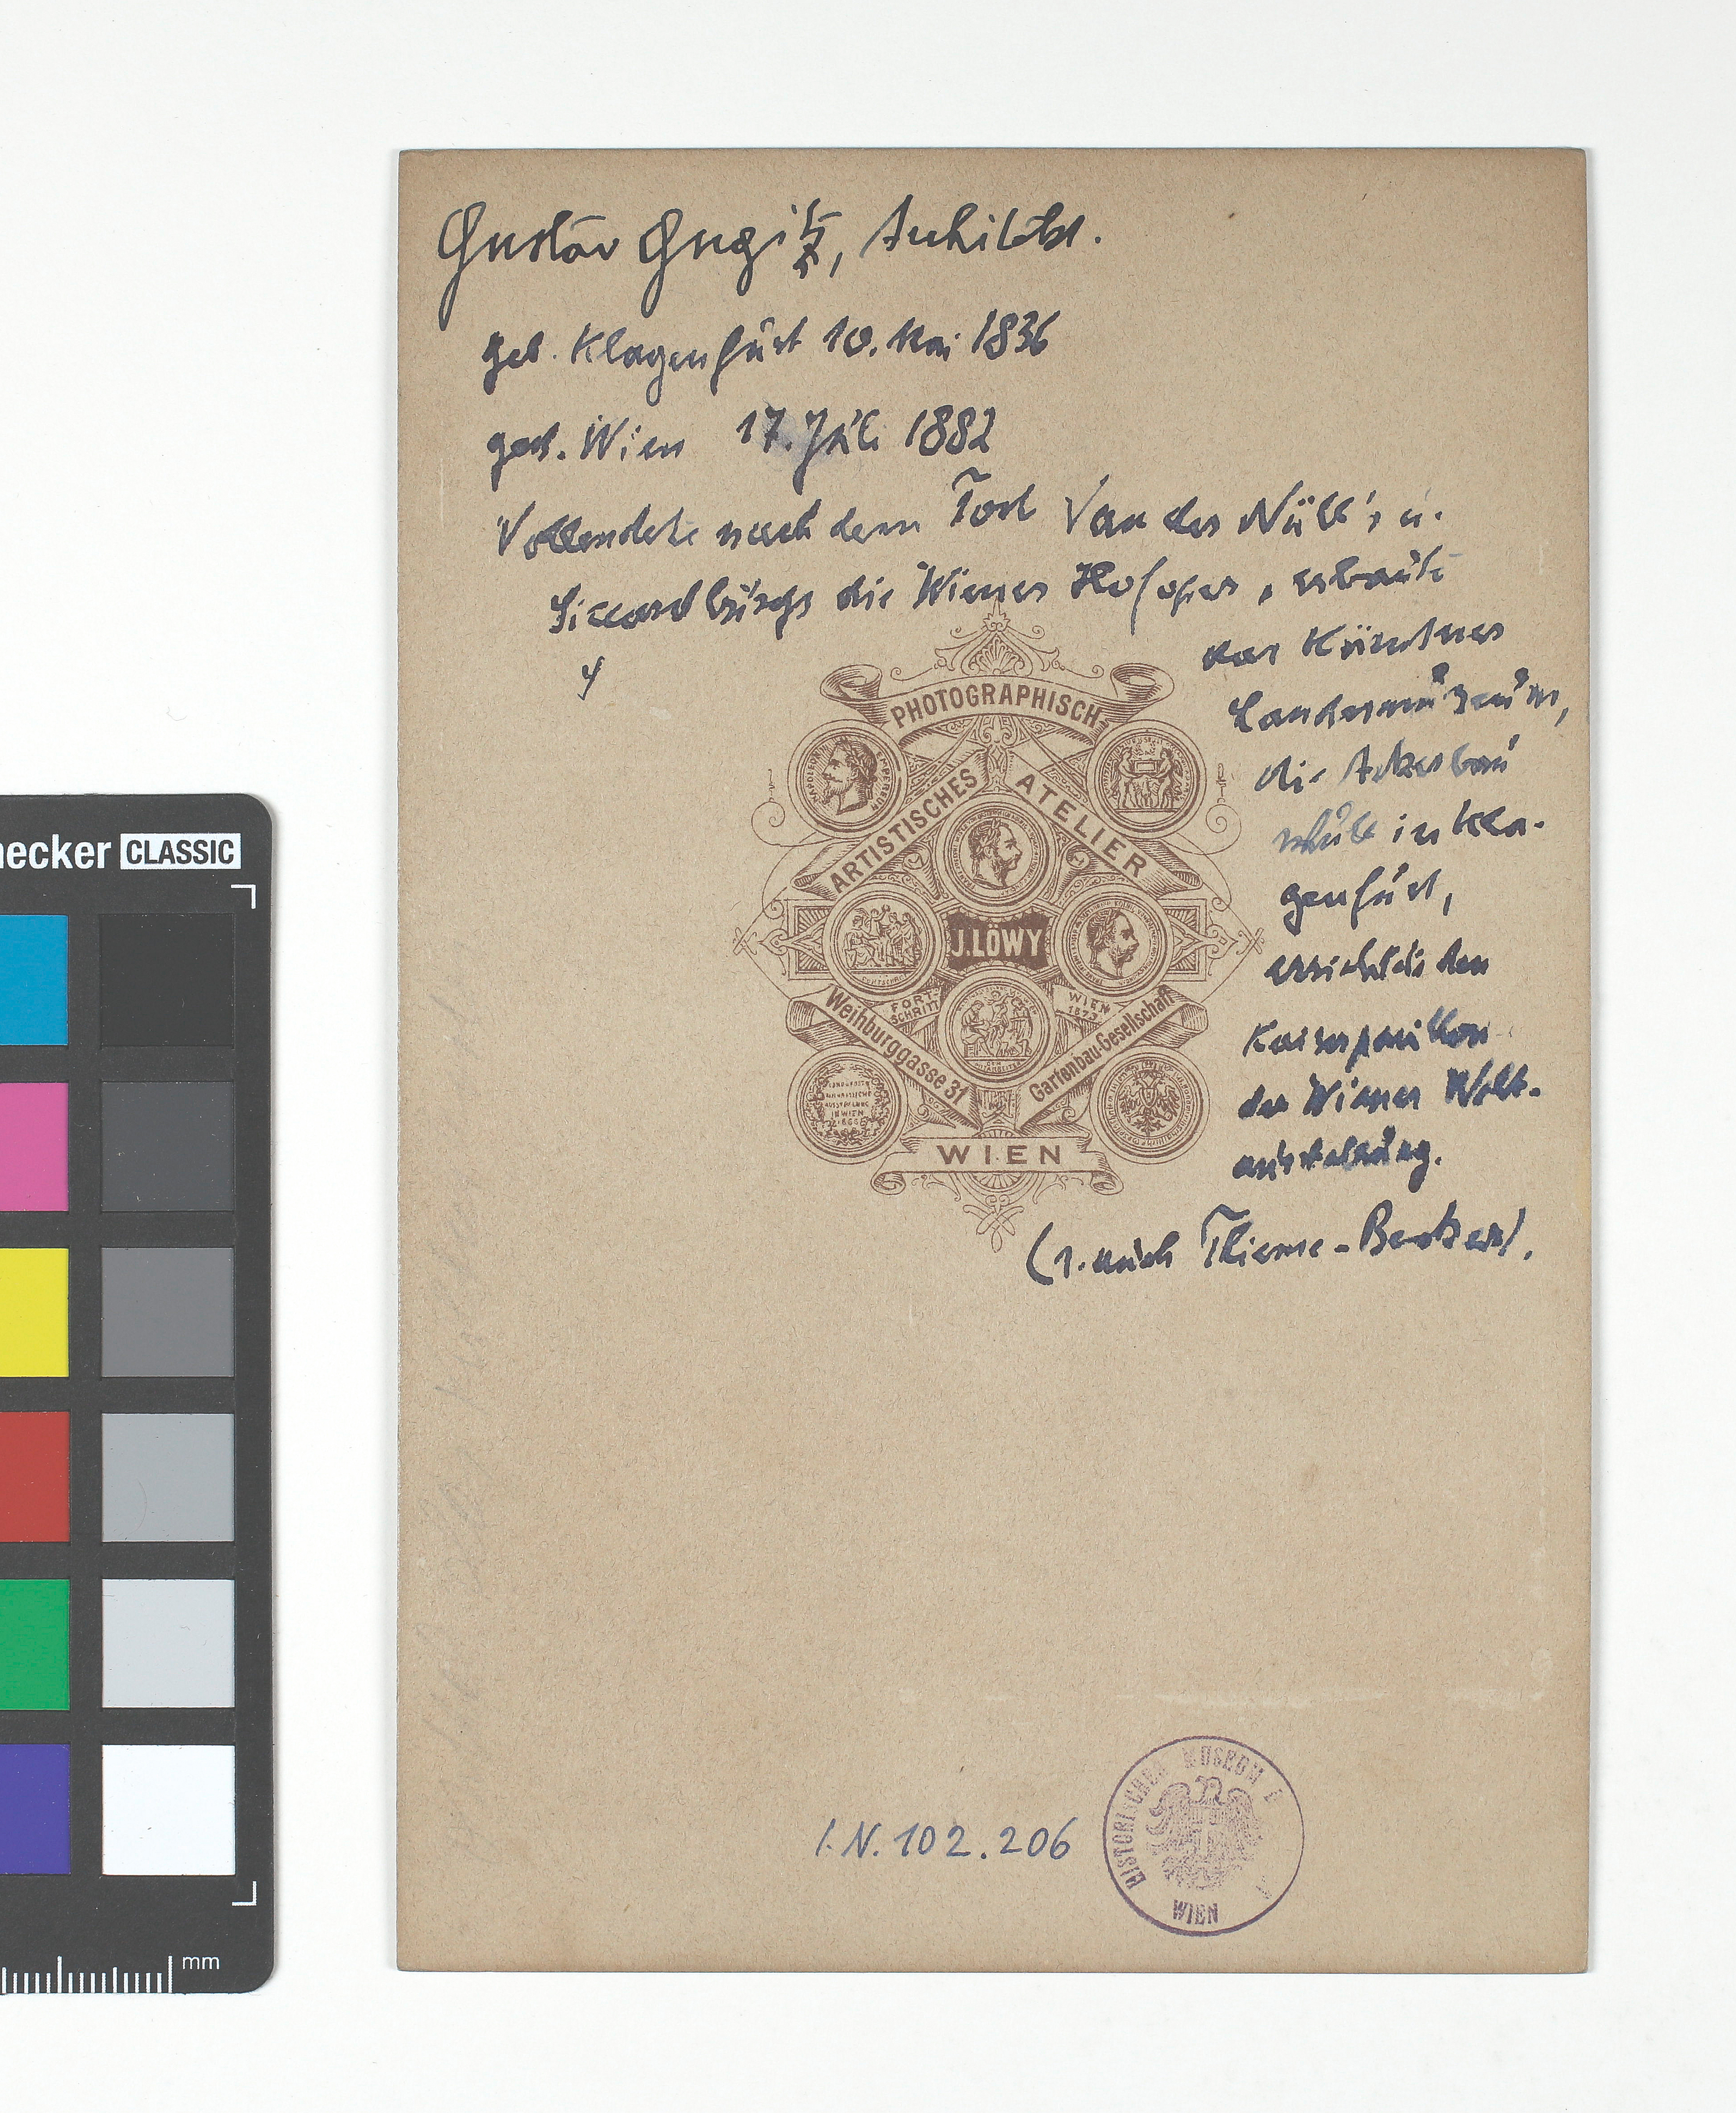 Gustav Gugitz, Architekt.
geb. Klagenfurt 10. Mai 1836
gest. Wien 17. Juli 1882
Vollendete nach dem Tod Van der Nüll's u.
Siccardburgs die Wiener Hofoper, erbaute
das Kärntner
Landesmuseum,
die Ackerbau
schule in Kla-
genfurt,
errichtete den
Kaiserpavillon
der Wiener Welt-
ausstellung.
(s. auch Thieme-Becker).
PHOTOGRAPHISCH-
ARTISTISCHES ATELIER
J. LÖWY
FORT-
SCHRITT
WIEN
1873
Weihburggasse 31
Gartenbau-Gesellschaft
WIEN
I.N. 102.206
HISTORISCHES MUSEUM
WIEN
hecker CLASSIC
mm